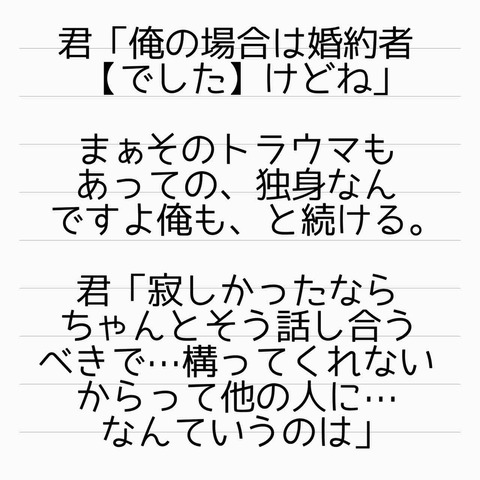 君「俺の場合は婚約者
【でした】けどね」
まぁそのトラウマも
あっての、独身なん
ですよ俺も、と続ける。
君「寂しかったなら
ちゃんとそう話し合う
べきで…構ってくれない
からって他の人に…
なんていうのは」